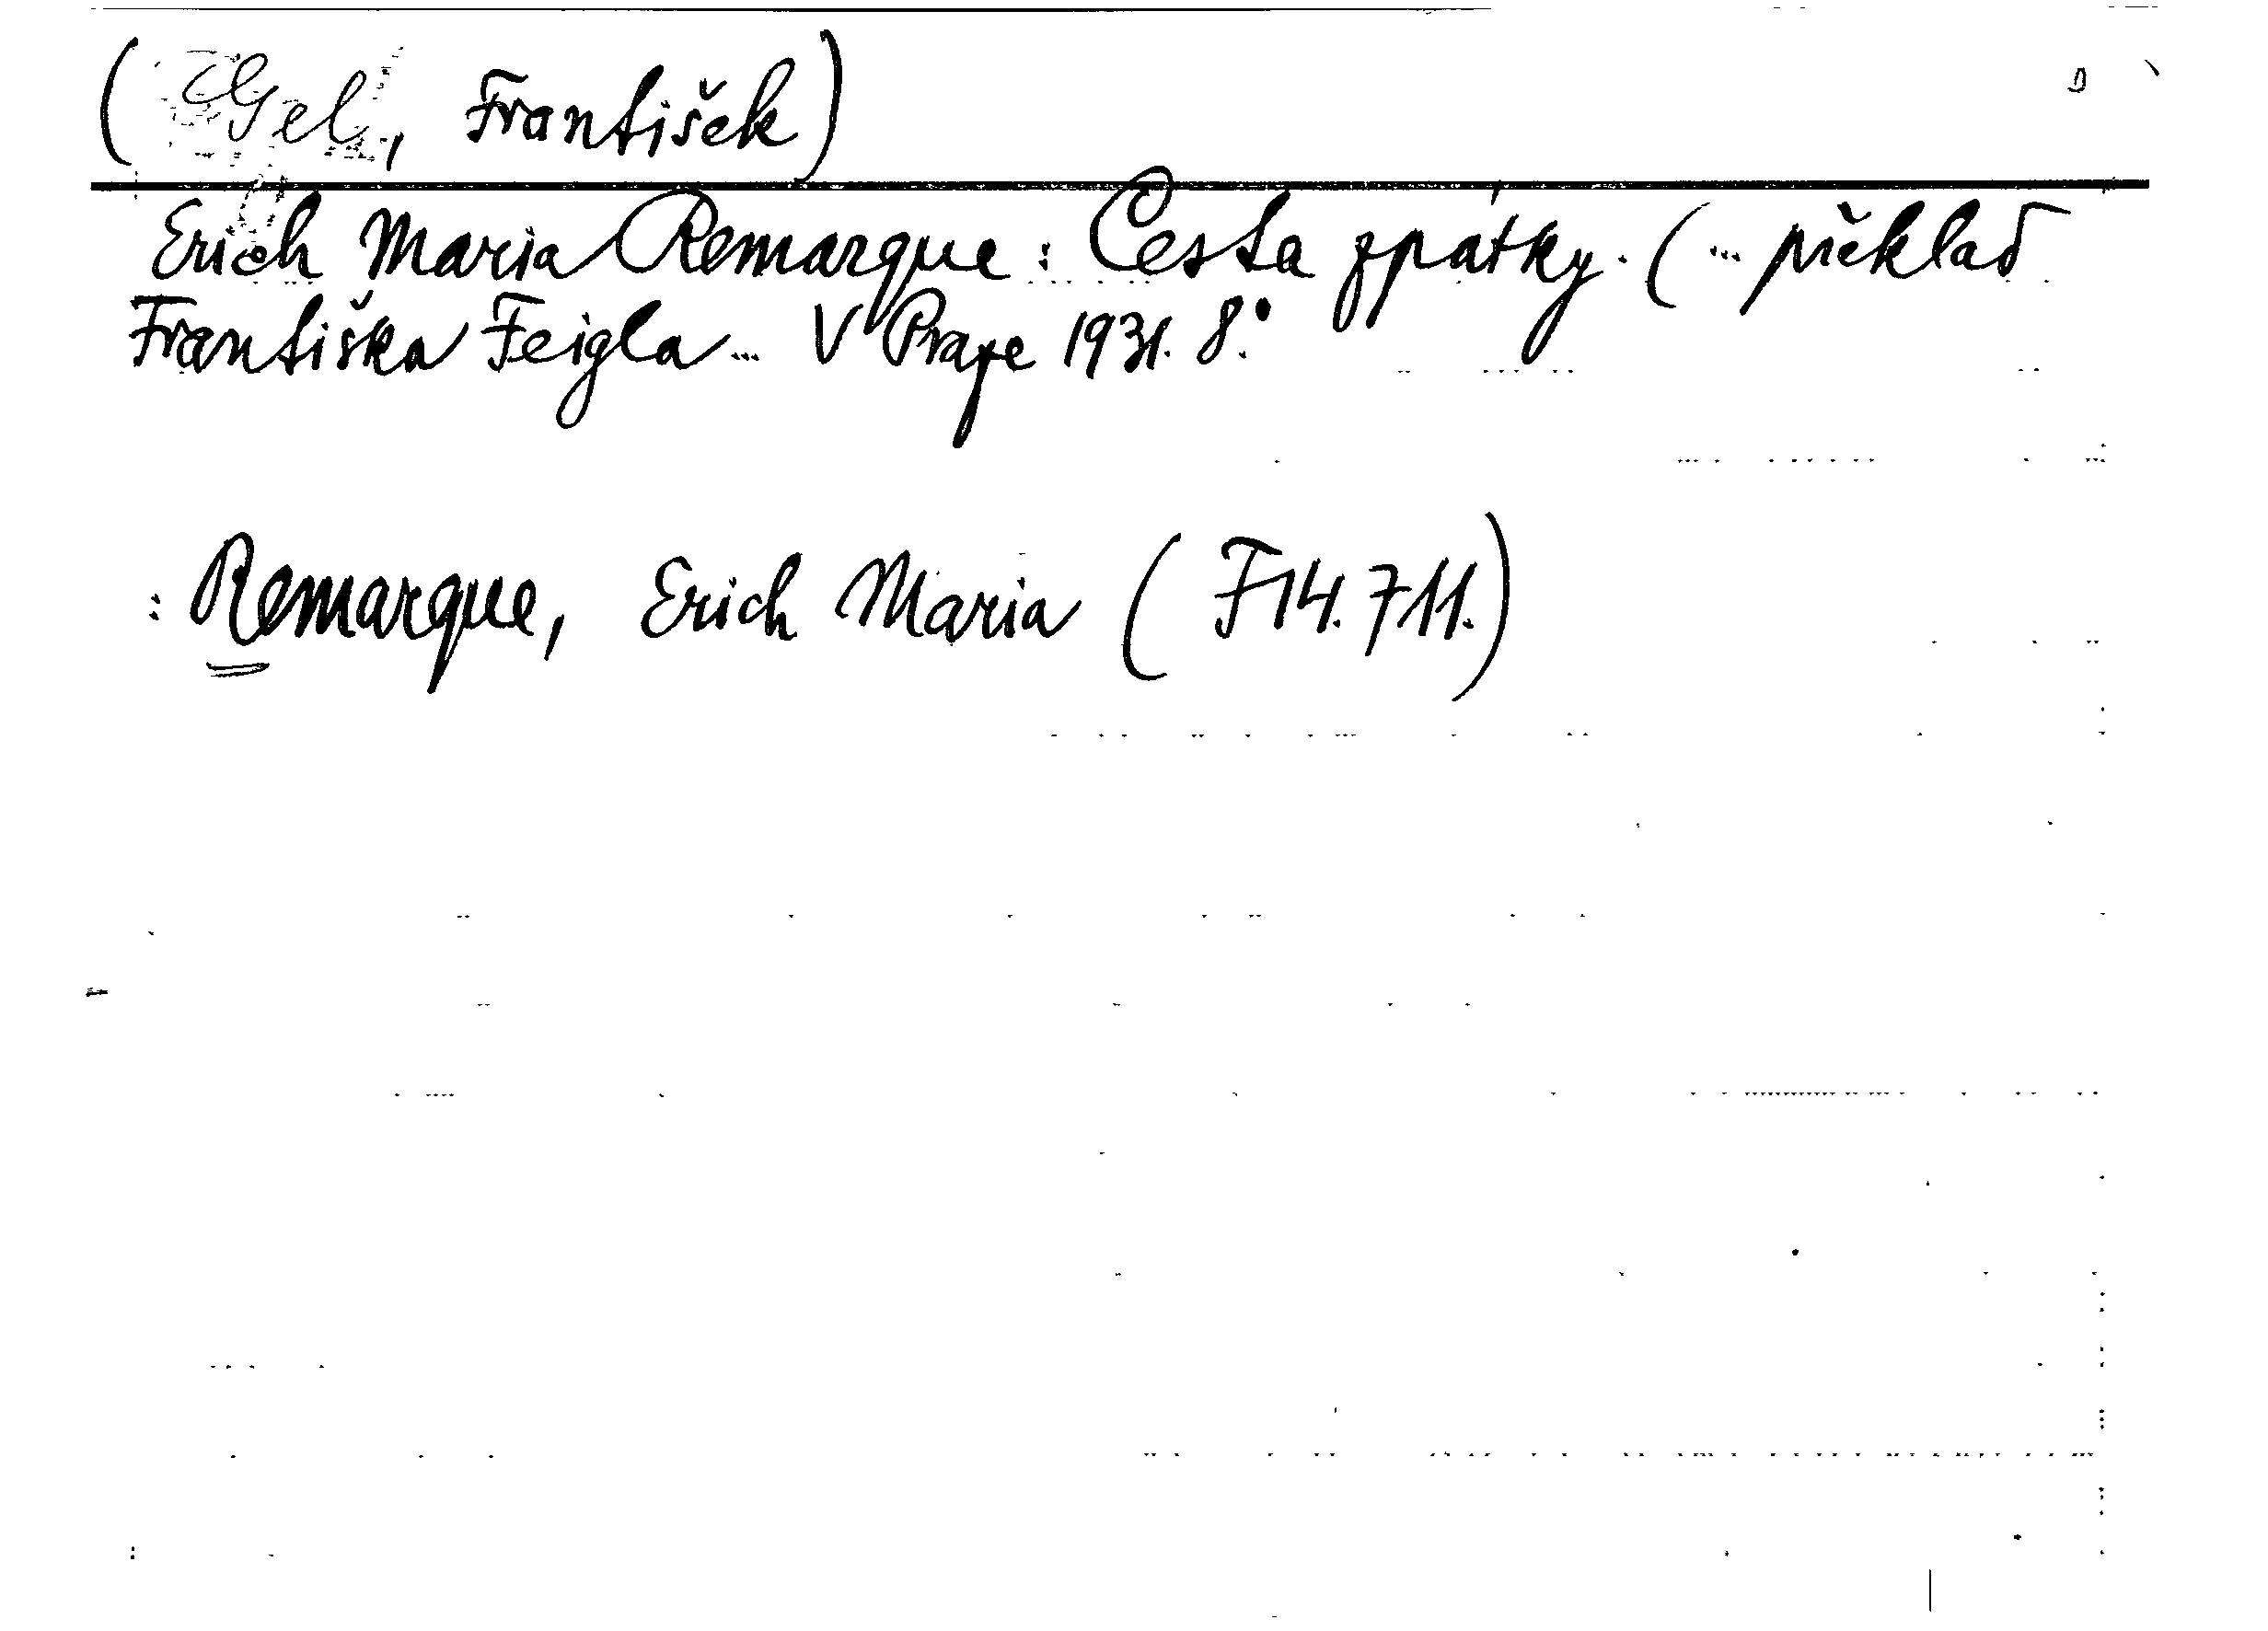 (Gel, František)
Erich Maria Remarque: Cesta zpátky. (... překlad
Františka Feigla... V Praze 1931. 8°.
: Remarque, Erich Maria (F14.711.)